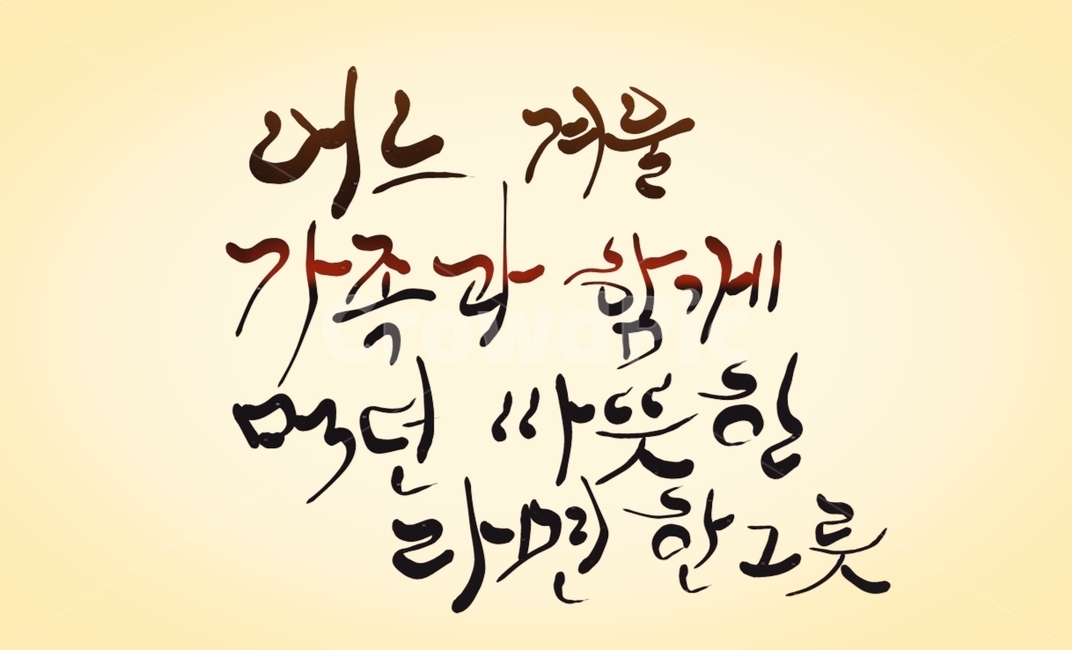 어느 겨울
가족과 함께
먹던 따뜻한
라면 한그릇
crowdpic